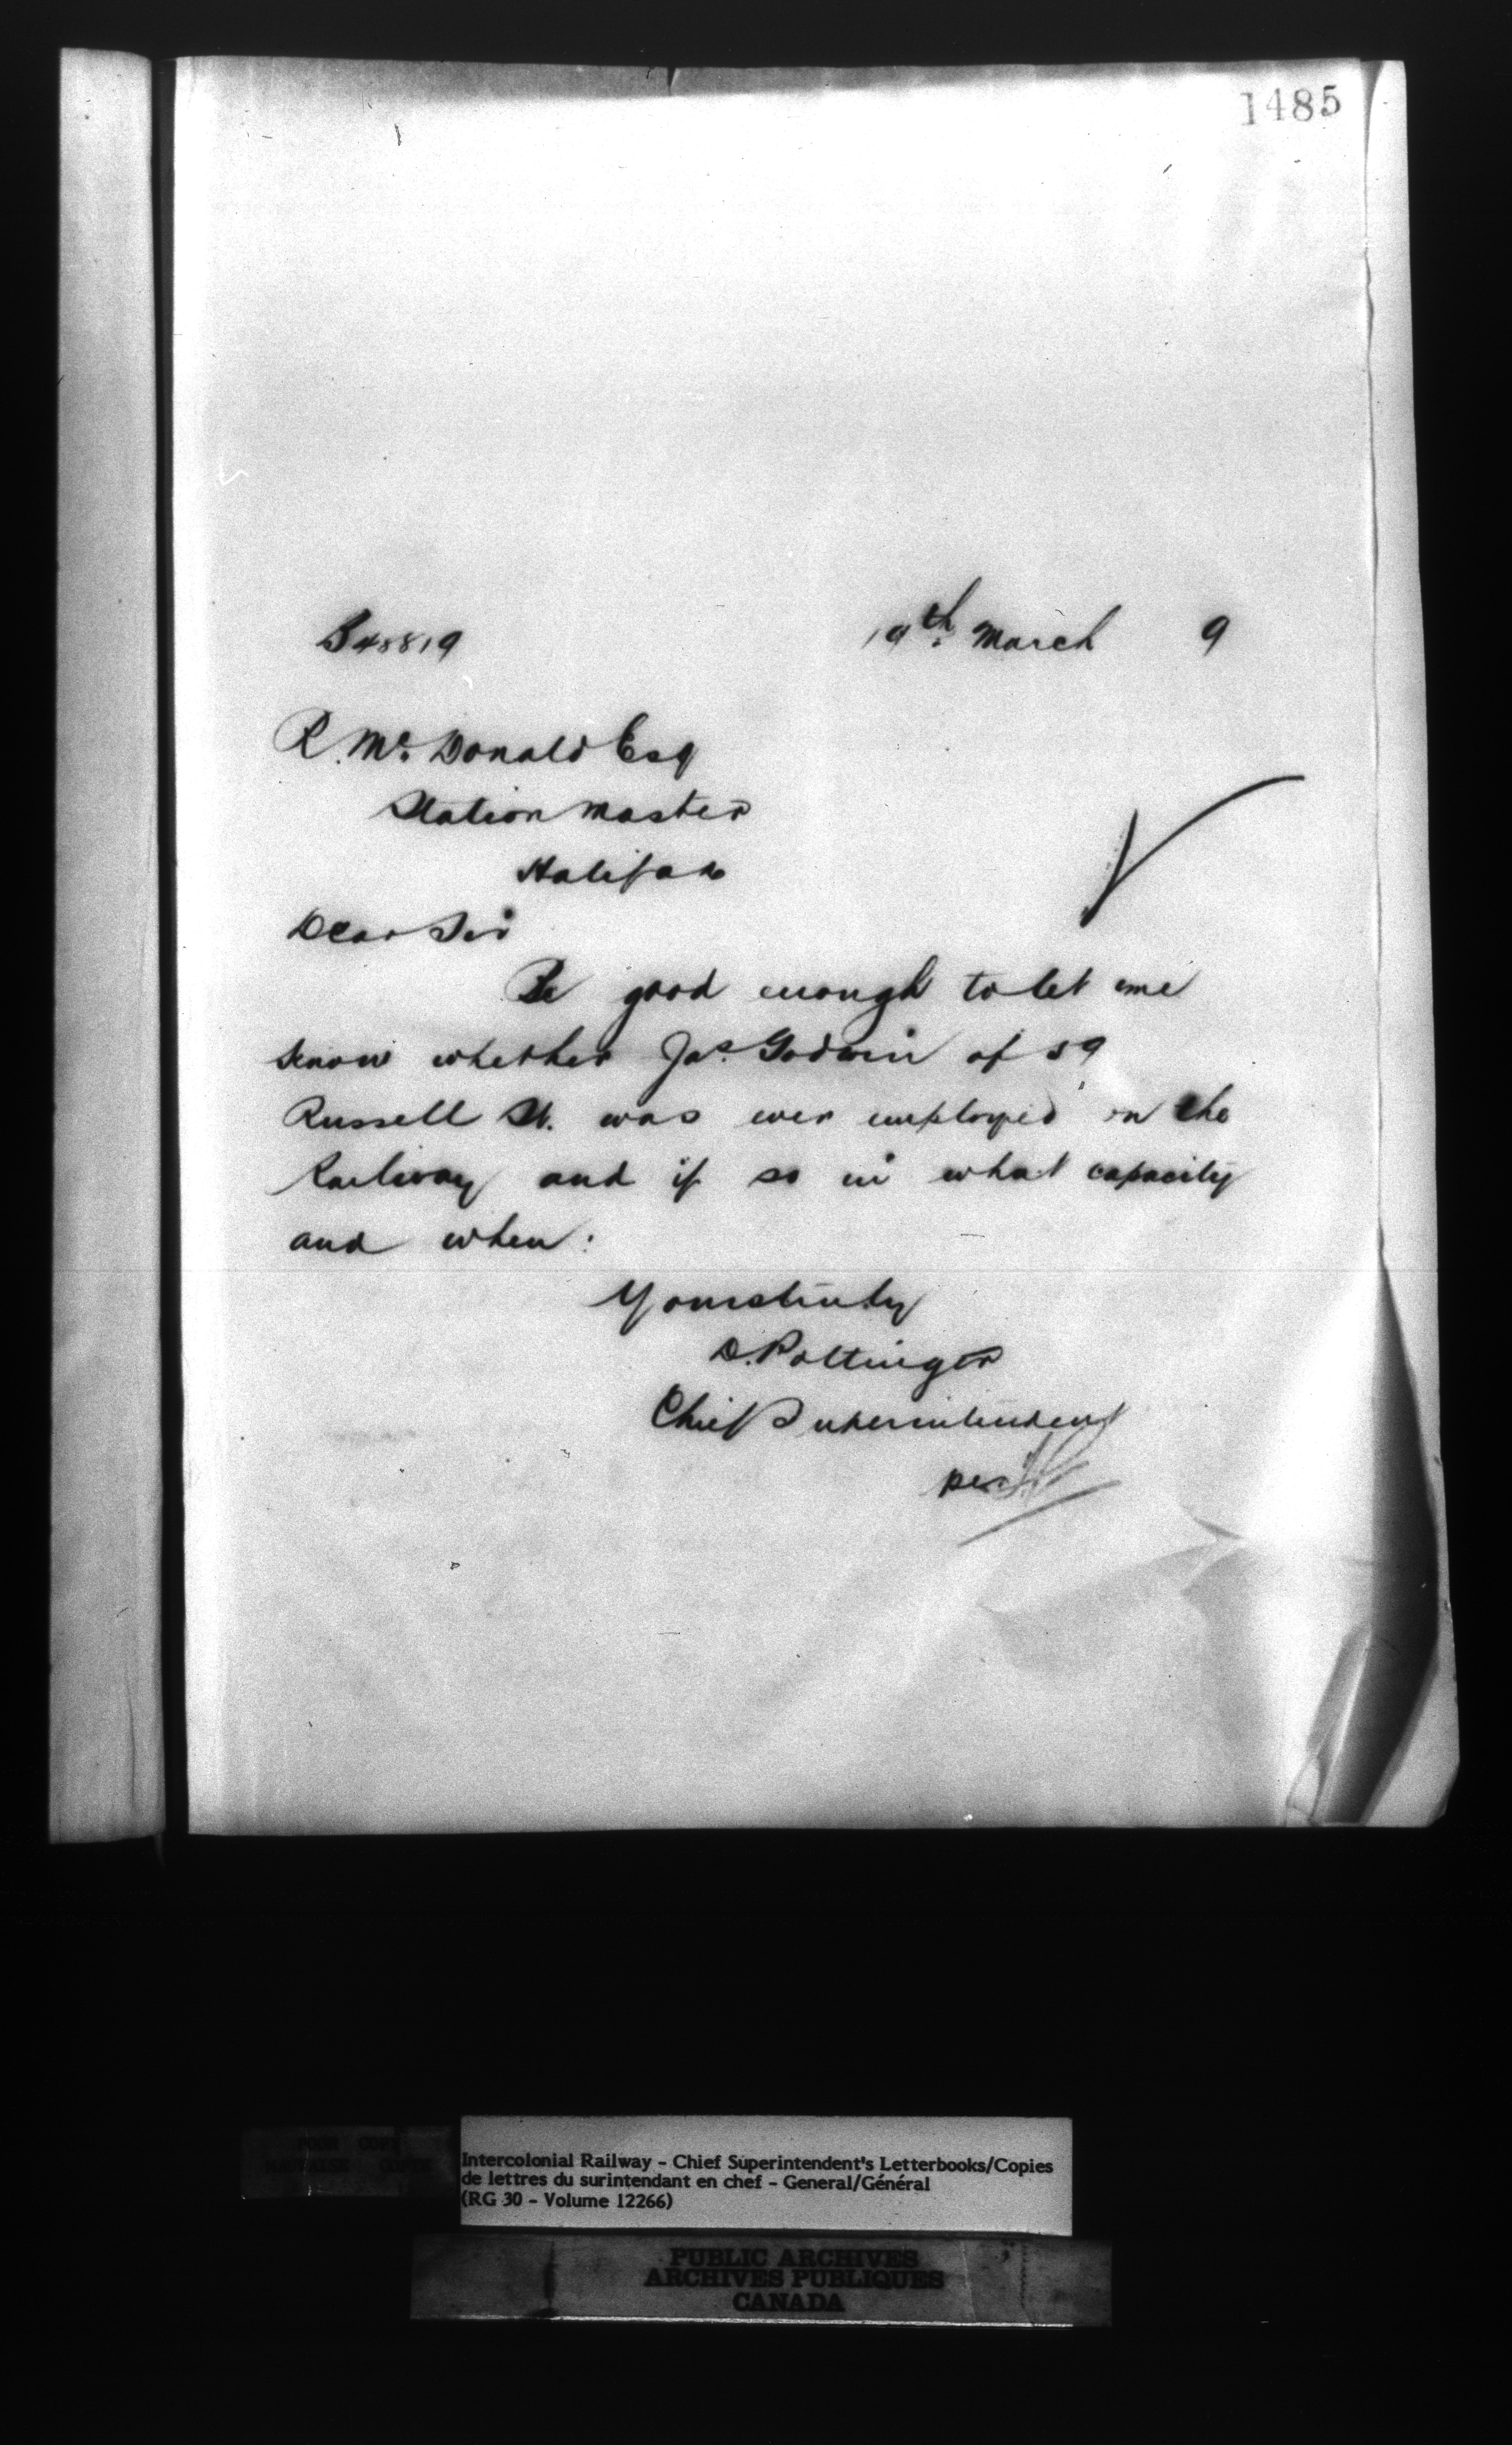 1485
B48819 19th. March 9
R. Mc. Donald Esq
Station Master
Halifax
Dear Sir
Be good enough to let me
know whether Jas. Godwin of 59
Russell St. was ever employed on the
Railway and if so in what capacity
and when:
Yours truly
D. Pottinger
Chief Superintendent
per
Intercolonial Railway - Chief Superintendent's Letterbooks/Copies
de lettres du surintendant en chef - General/Général
(RG 30 - Volume 12266)
PUBLIC ARCHIVES
ARCHIVES PUBLIQUES
CANADA